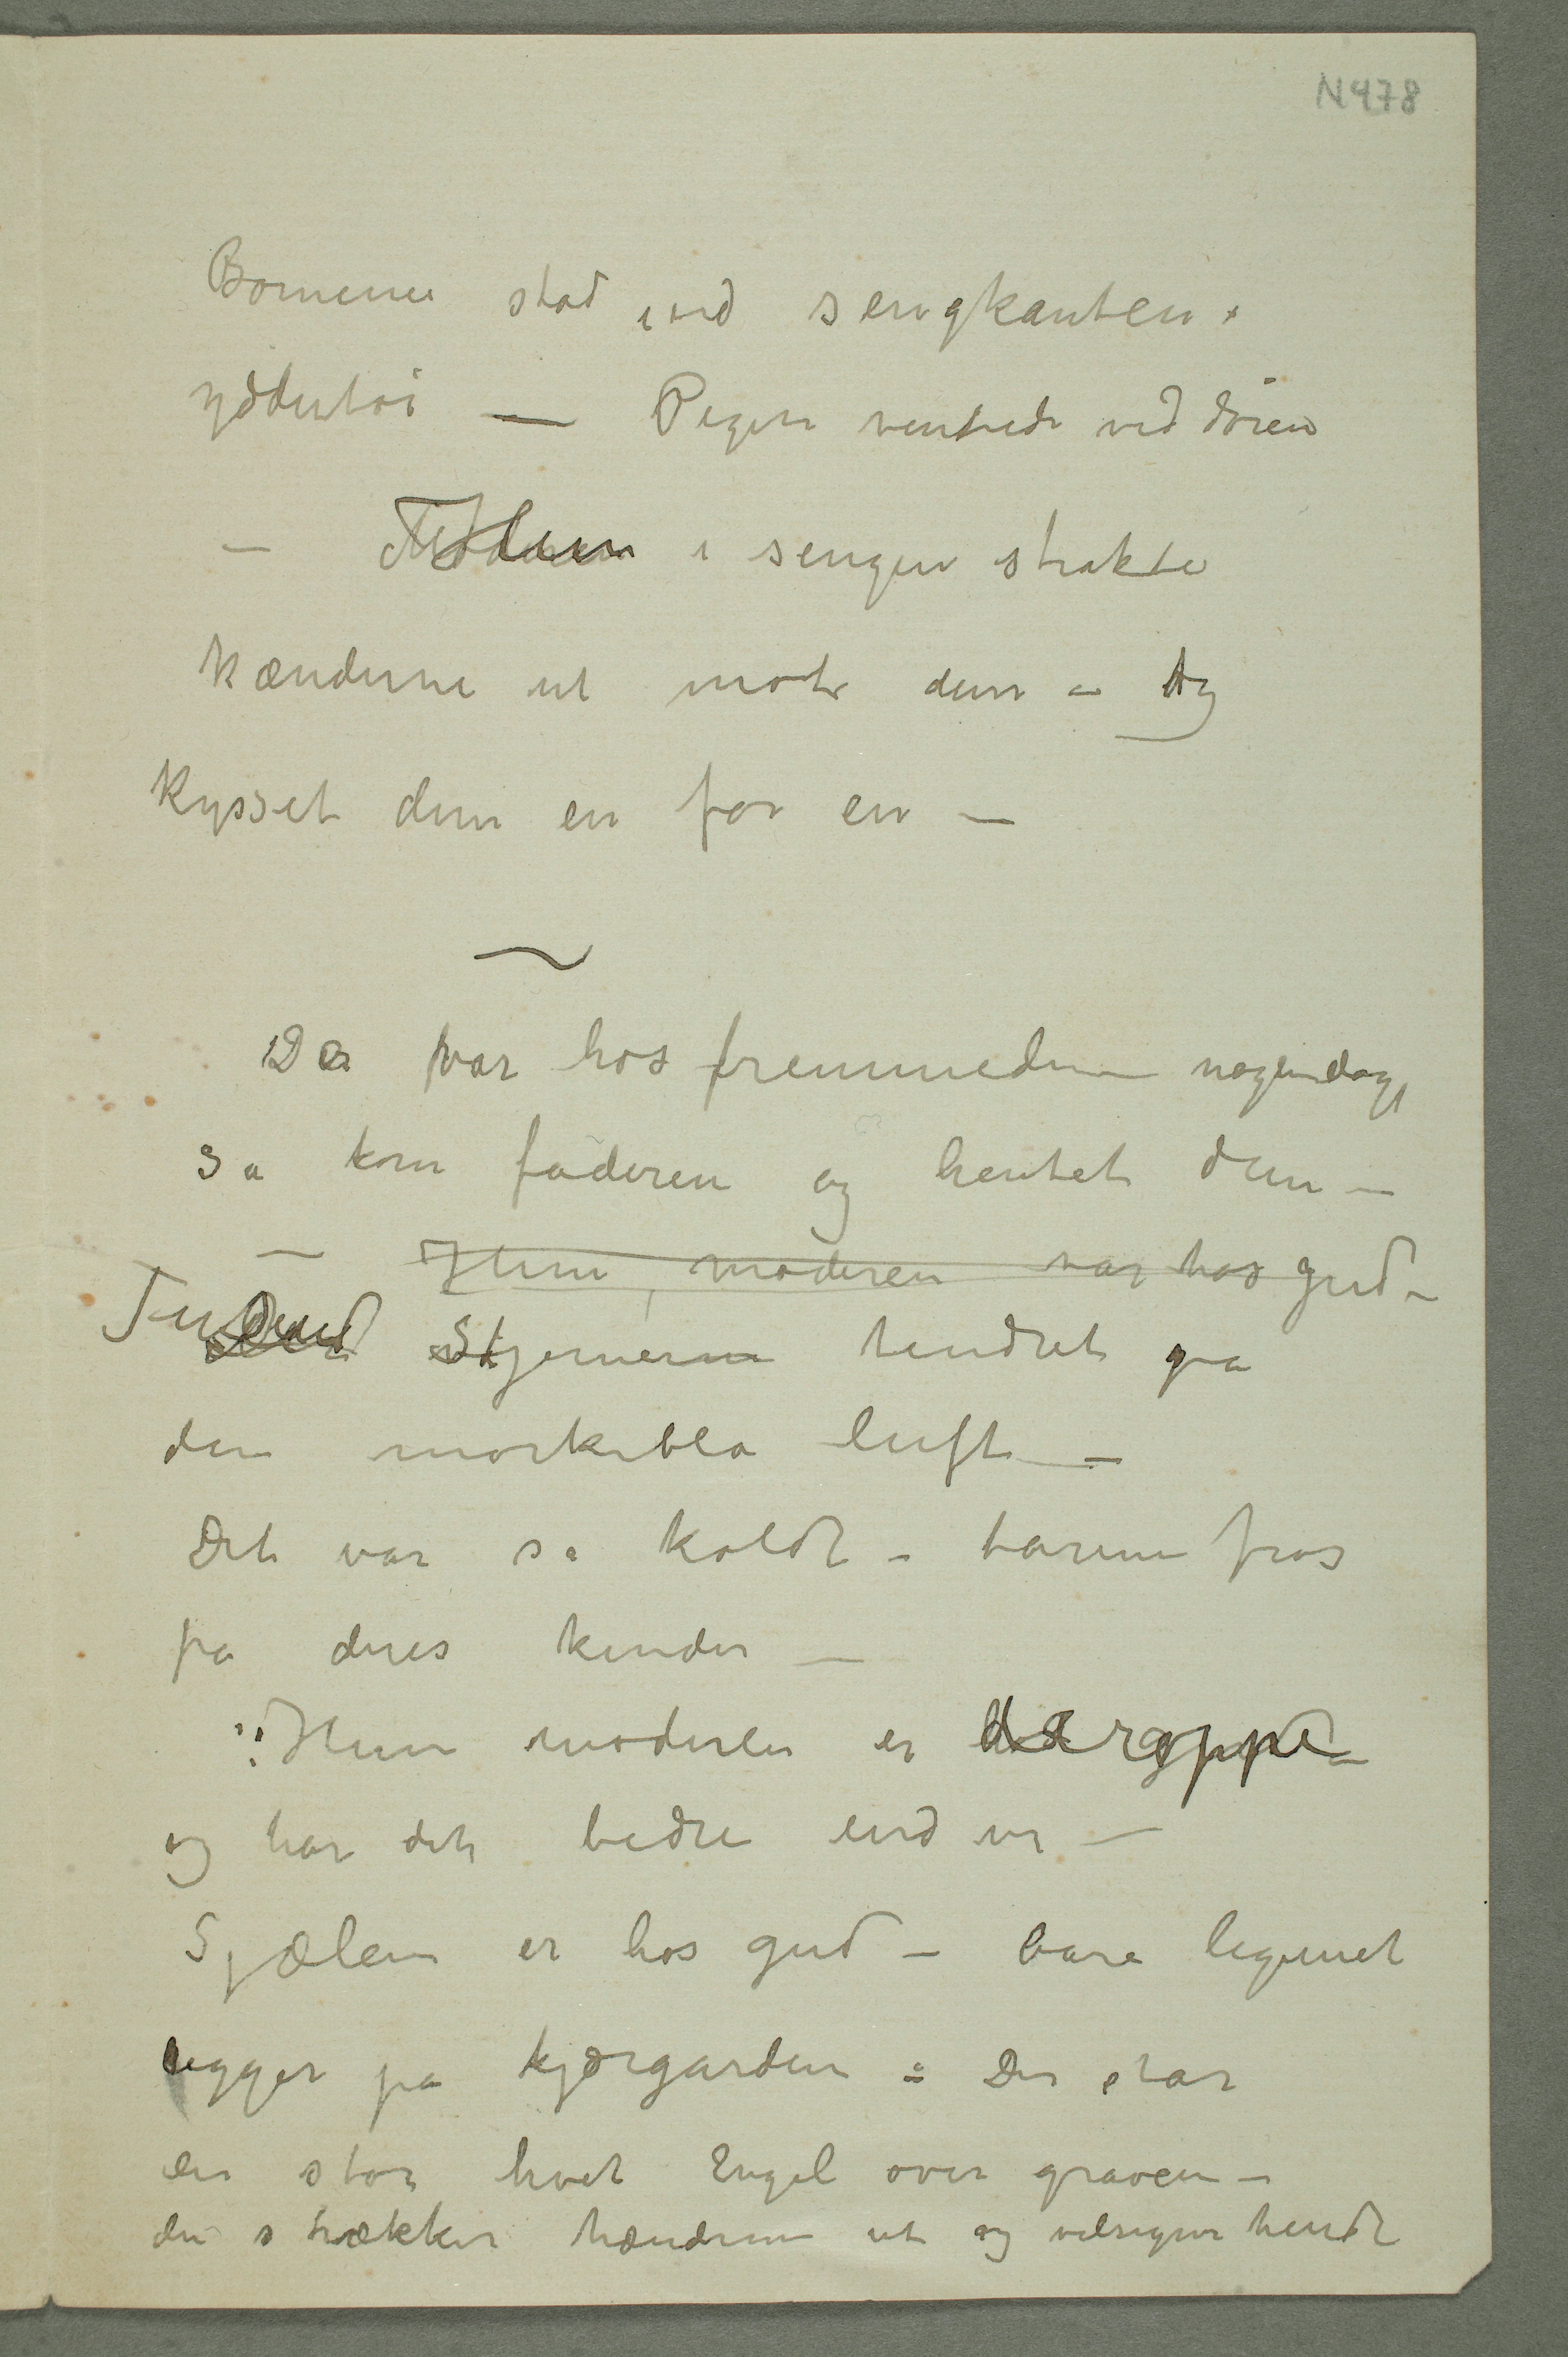 N478
Bornene stod ved sengkanten i
yddertøi — Pigen ventede ved døren
— Moderen i sengen strakte
hænderne ut mot dem – og
kyssed dem en for en —
~
De var hos fremmede nogen dage
så kom faderen og hentet dem —
— Hun, moderen var hos gud –
Tusend Stjernerne tindret på
den mørkeblå luft —
Det var så koldt – tarene frøs
på deres kinder —
": Hun moderen er deroppe –
og har det bedre end vi —
Sjælen er hos gud – bare legemet
ligger på kjærgarden : Der står
en stor hvet Engel over graven –
den strækker hænderne ut og velsigner hende